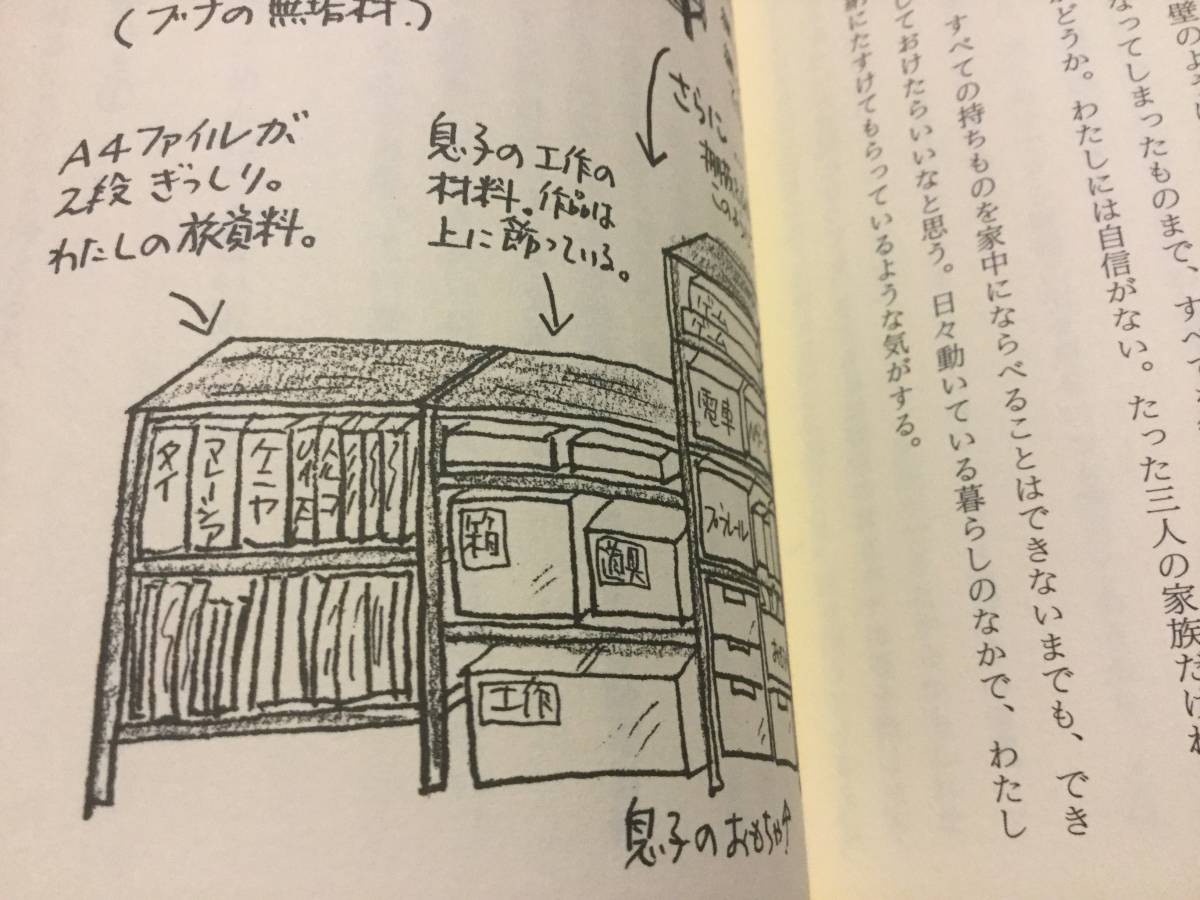 壁のように
なってしまったものまで、すべて
かどうか。わたしには自信がない。たった三人の家族だけれ
すべての持ちものを家中にならべることはできないまでも、でき
しておけたらいいなと思う。日々動いている暮らしのなかで、わたし
納にたすけてもらっているような気がする。
(ブナの無垢材.)
A4ファイルが
2段 ぎっしり。
わたしの旅資料。
息子の工作の
材料。作品は
上に飾っている。
さらに
この
タイ
マレーシア
ケニヤ
トルコ
箱
道具
工作
ゲーム
ゲーム
電車
プラレール
息子のおもちゃ↑